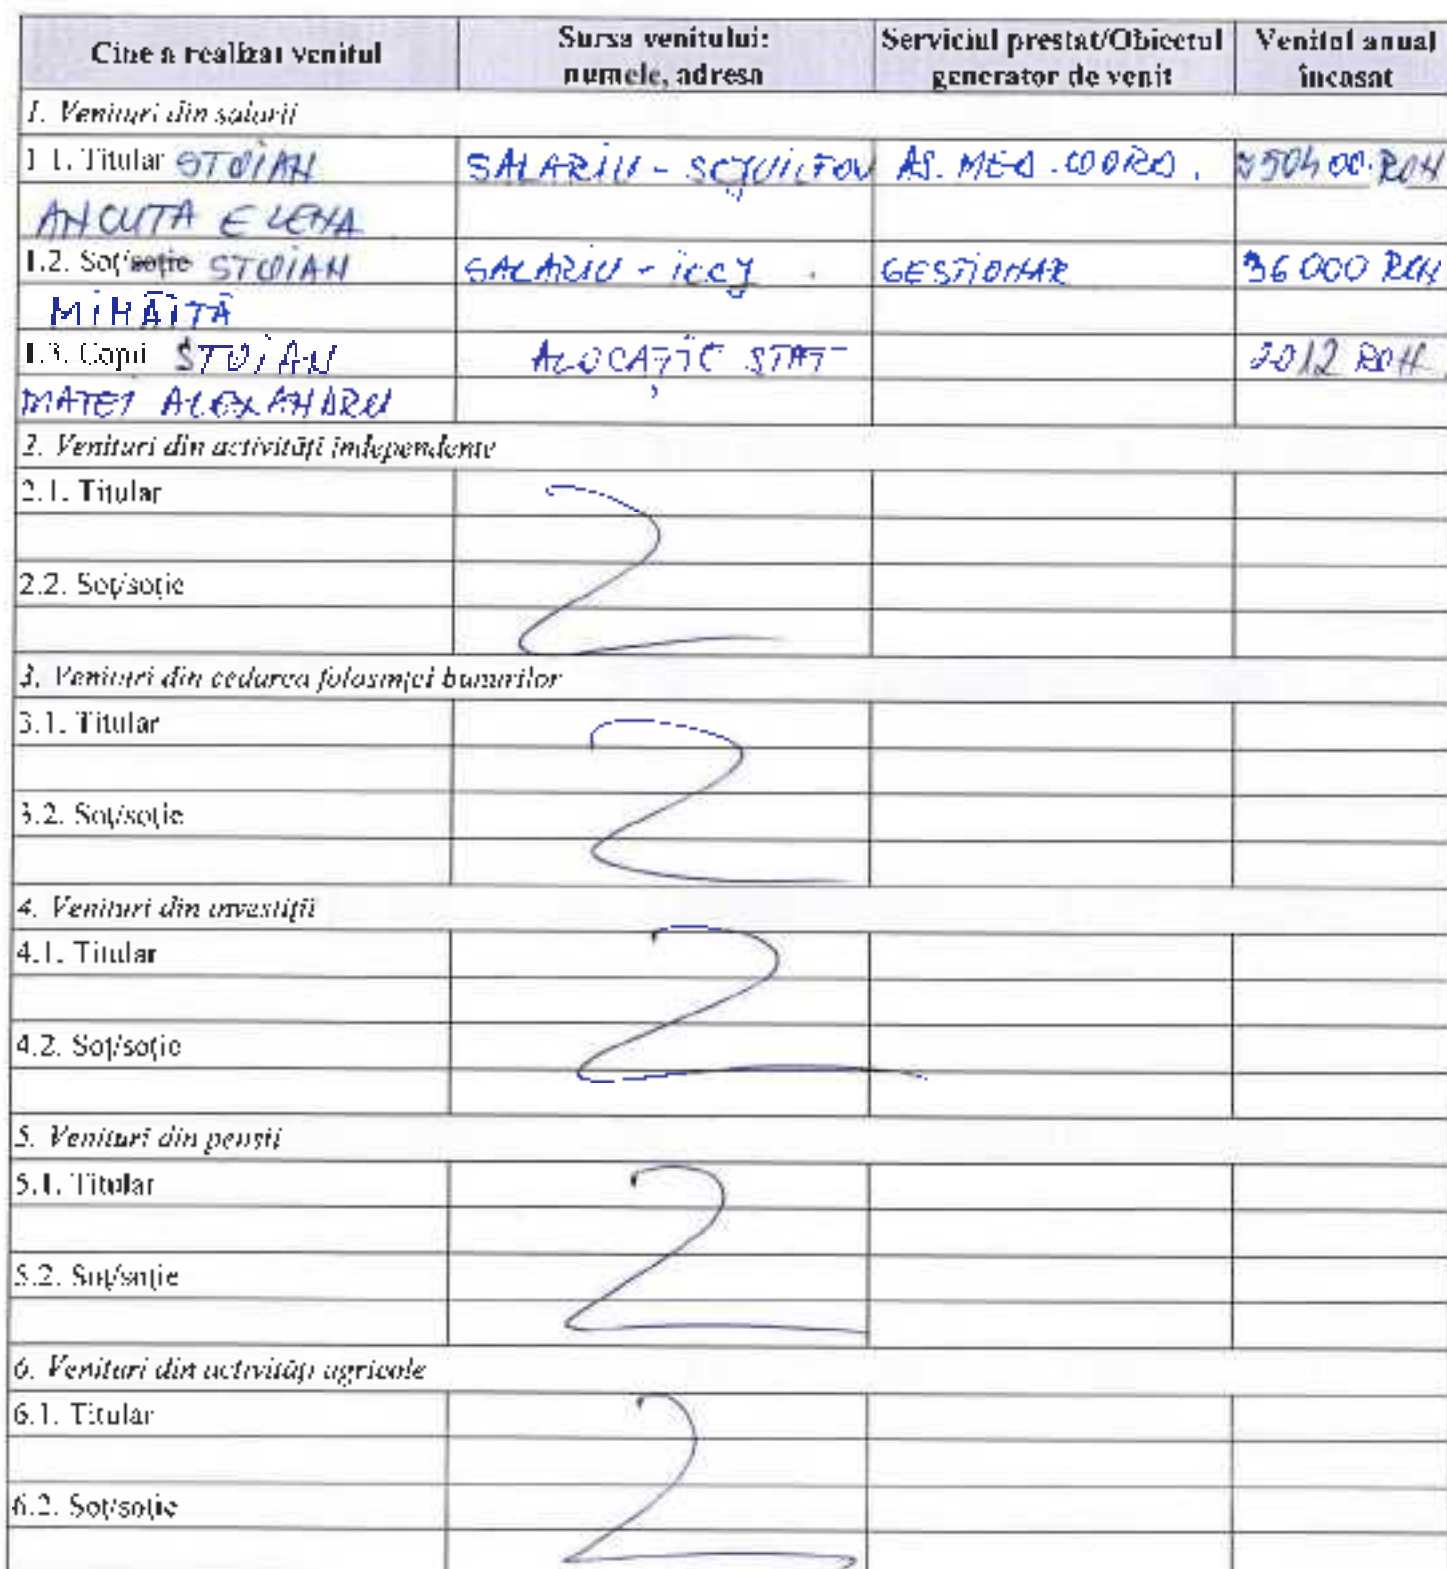 Cine a realizat venitul Sursa venitului: numele, adresa Serviciul prestat/Obiectul generator de venit Venitul anual încasat
1. Venituri din salarii
1.1. Titular STOIAN SALARIU - SCJU ILFOV AS. MED. COORD. RON
ANCUTA ELENA
1.2. Soț/soție STOIAN SALARIU - GESTIONAR 36 000 RON
MIHĂIȚĂ
1.3. Copii STOIAN ALOCAȚIE STAT 2012 RON
MATEI ALEXANDRU
2. Venituri din activități independente
2.1. Titular
2.2. Soț/soție
3. Venituri din cedarea folosinței bunurilor
3.1. Titular
3.2. Soț/soție
4. Venituri din investiții
4.1. Titular
4.2. Soț/soție
5. Venituri din pensii
5.1. Titular
5.2. Soț/soție
6. Venituri din activități agricole
6.1. Titular
6.2. Soț/soție